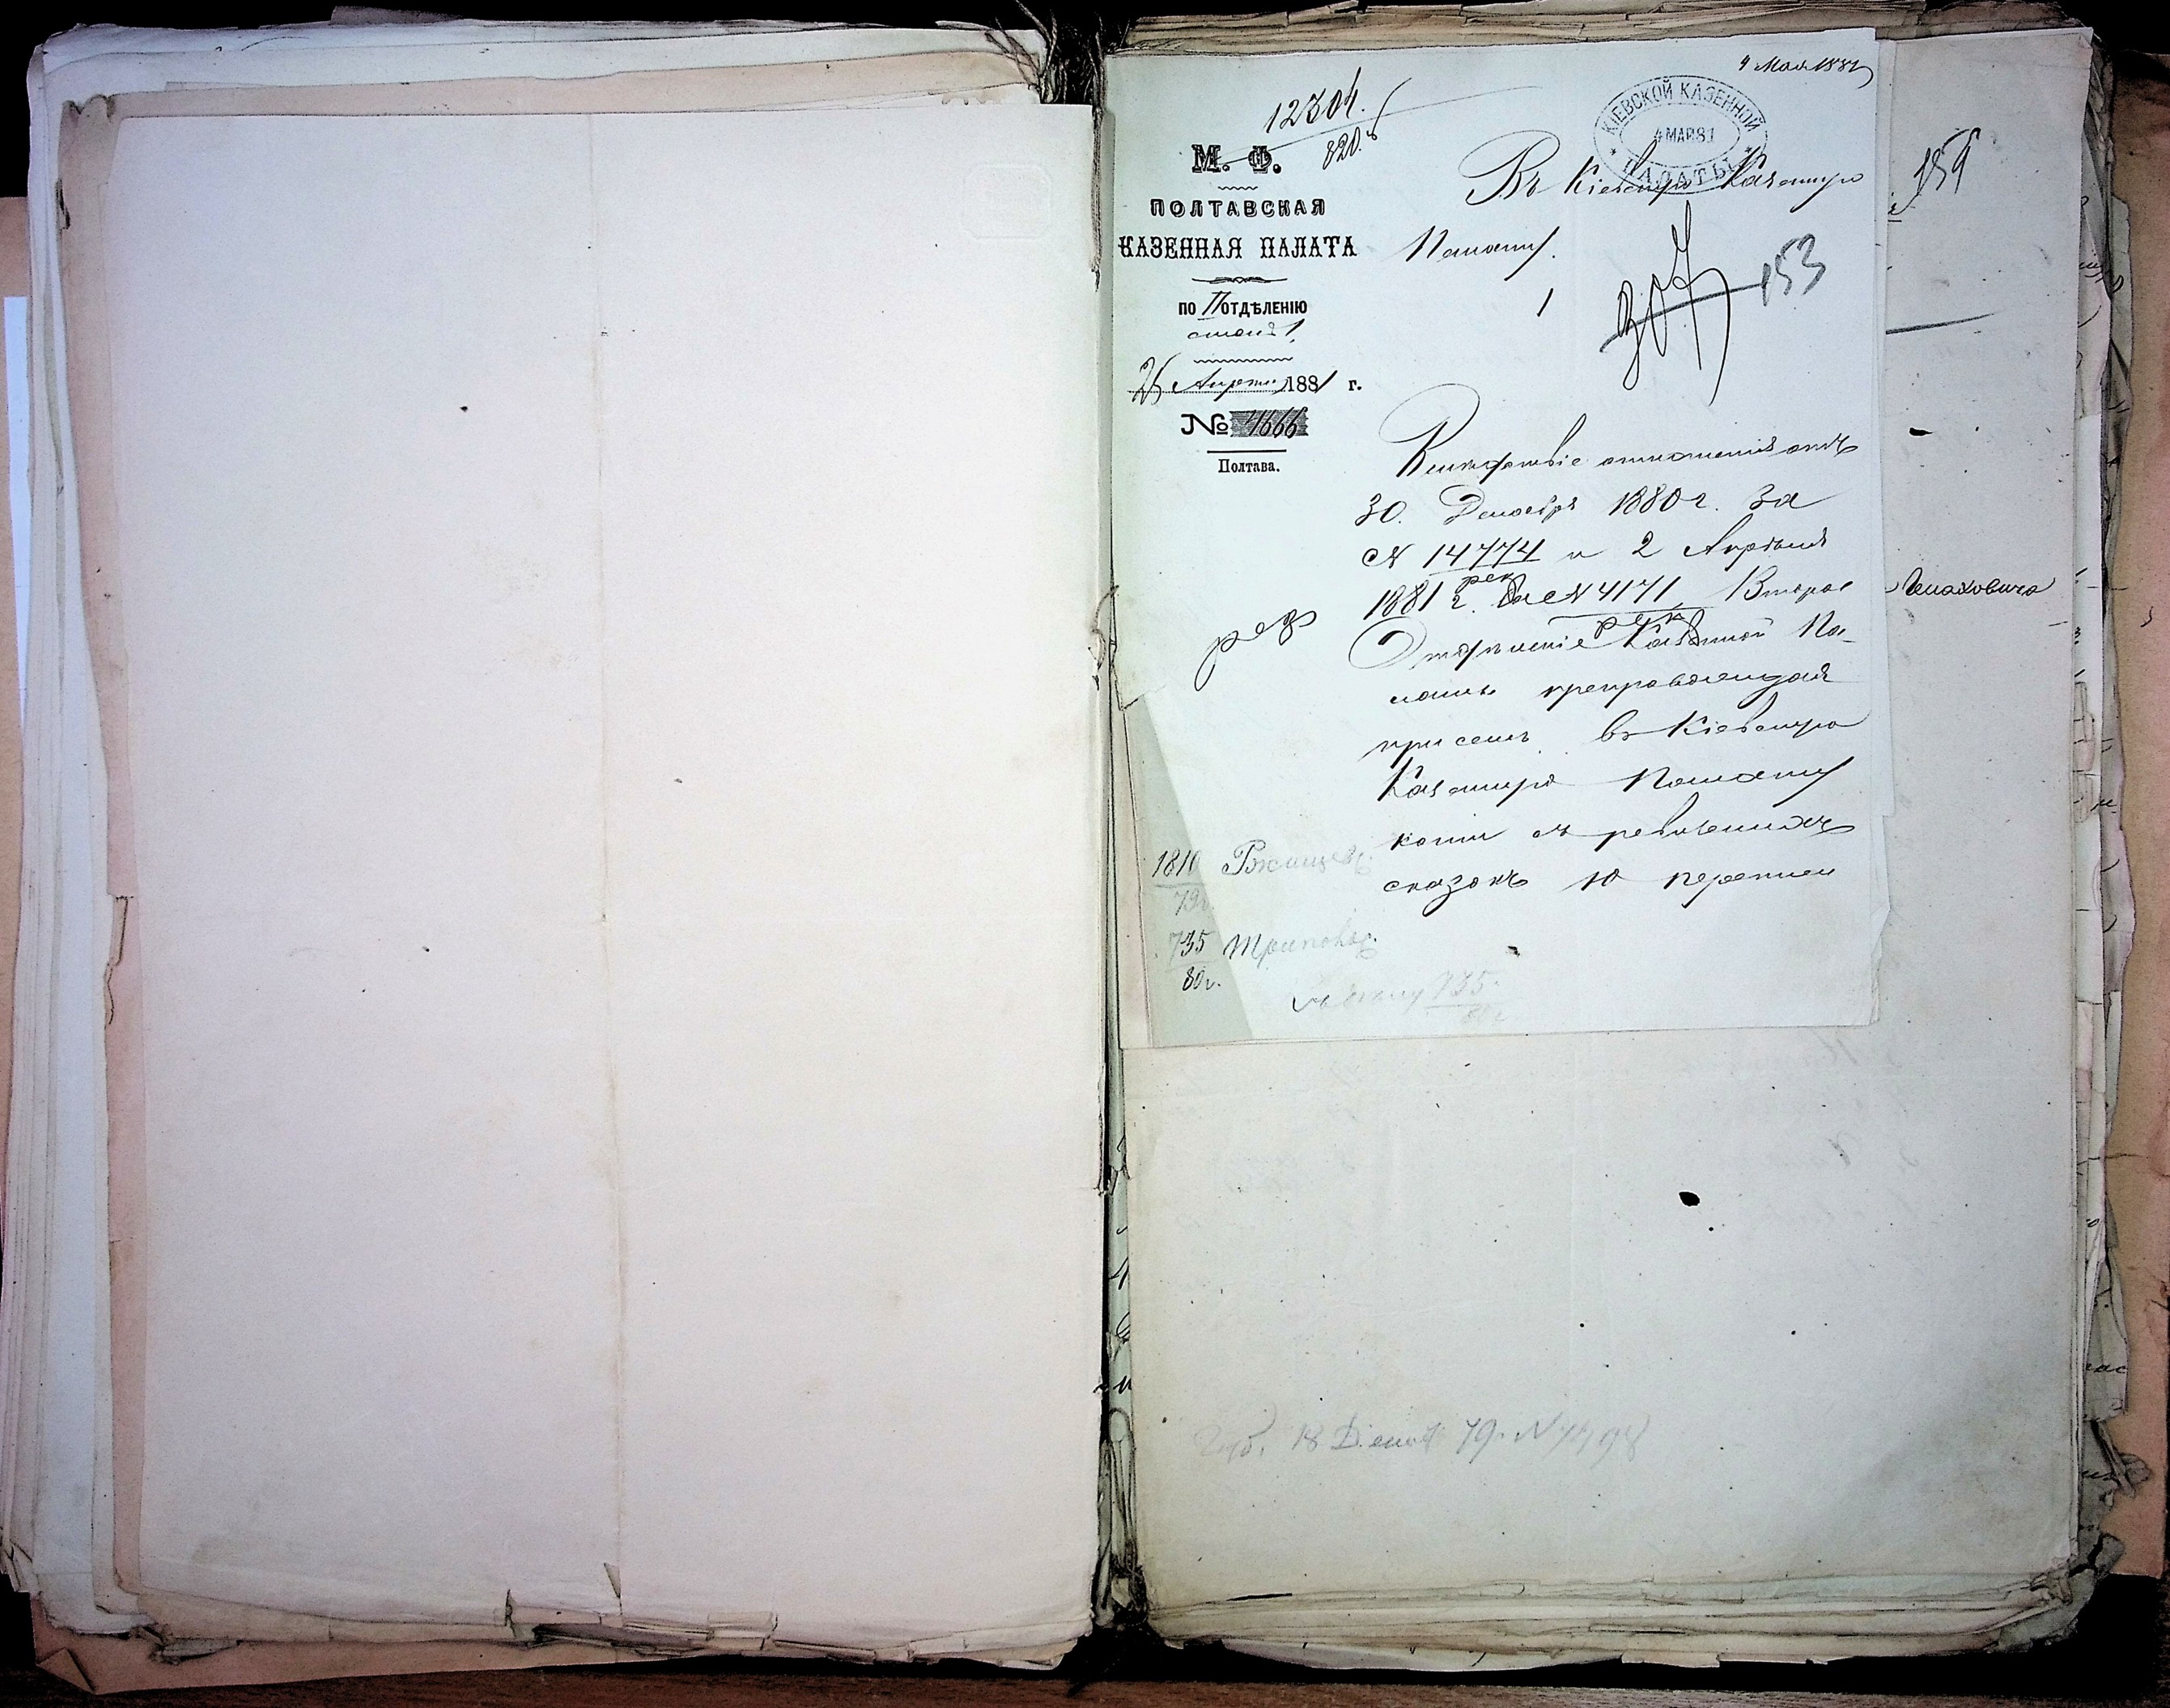 4 Мая 1881
12304.
820.
М. Ф.
ПОЛТАВСКАЯ
КАЗЕННАЯ ПАЛАТА
ПО II ОТДѢЛЕНІЮ
столъ 1.
Апрѣля 1881 г.
№ 4666
Полтава.
КІЕВСКОЙ КАЗЕННОЙ
4 МАЯ 81
ПАЛАТЫ
Въ Кіевскую Казенную
Палату.
159
307
153
Вслѣдствіе отношенія отъ
30. Декабря 1880 г. за
№ 14774 и 2 Апрѣля
1881 г. за № 4171, Второе
Отдѣленіе Казенной Па-
латы препровождая
при семъ въ Кіевскую
Казенную Палату
копіи съ ревизскихъ
сказокъ 10 переписи
рек
рек
рез
1810 Ржищев.
79г.
735 Триполь.
80г.
735.
80г
18 Декаб 79.